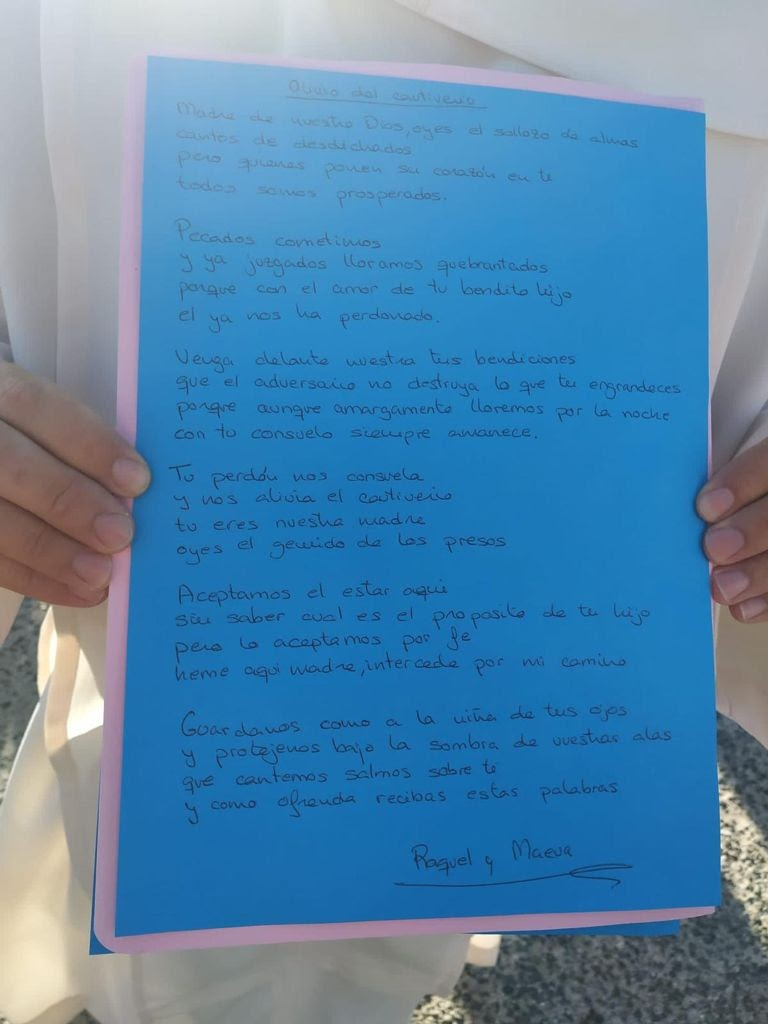 Alivio del cautiverio
Madre de nuestro Dios, oyes el sollozo de almas
cantos de desdichados
pero quienes ponen su corazón en ti
todos somos prosperados.
Pecados cometimos
y ya juzgados lloramos quebrantados
porque con el amor de tu bendito hijo
el ya nos ha perdonado.
Venga delante nuestra tus bendiciones
que el adversario no destruya lo que tu engrandeces
porque aunque amargamente lloremos por la noche
con tu consuelo siempre amanece.
Tu perdón nos consuela
y nos alivia el cautiverio
tu eres nuestra madre
oyes el gemido de los presos
Aceptamos el estar aqui
sin saber cual es el proposito de tu hijo
pero lo aceptamos por fe
heme aqui madre, intercede por mi camino
Guardanos como a la niña de tus ojos
y protejenos bajo la sombra de vuestras alas
que cantemos salmos sobre ti
y como ofrenda recibas estas palabras
Raquel y Maeva